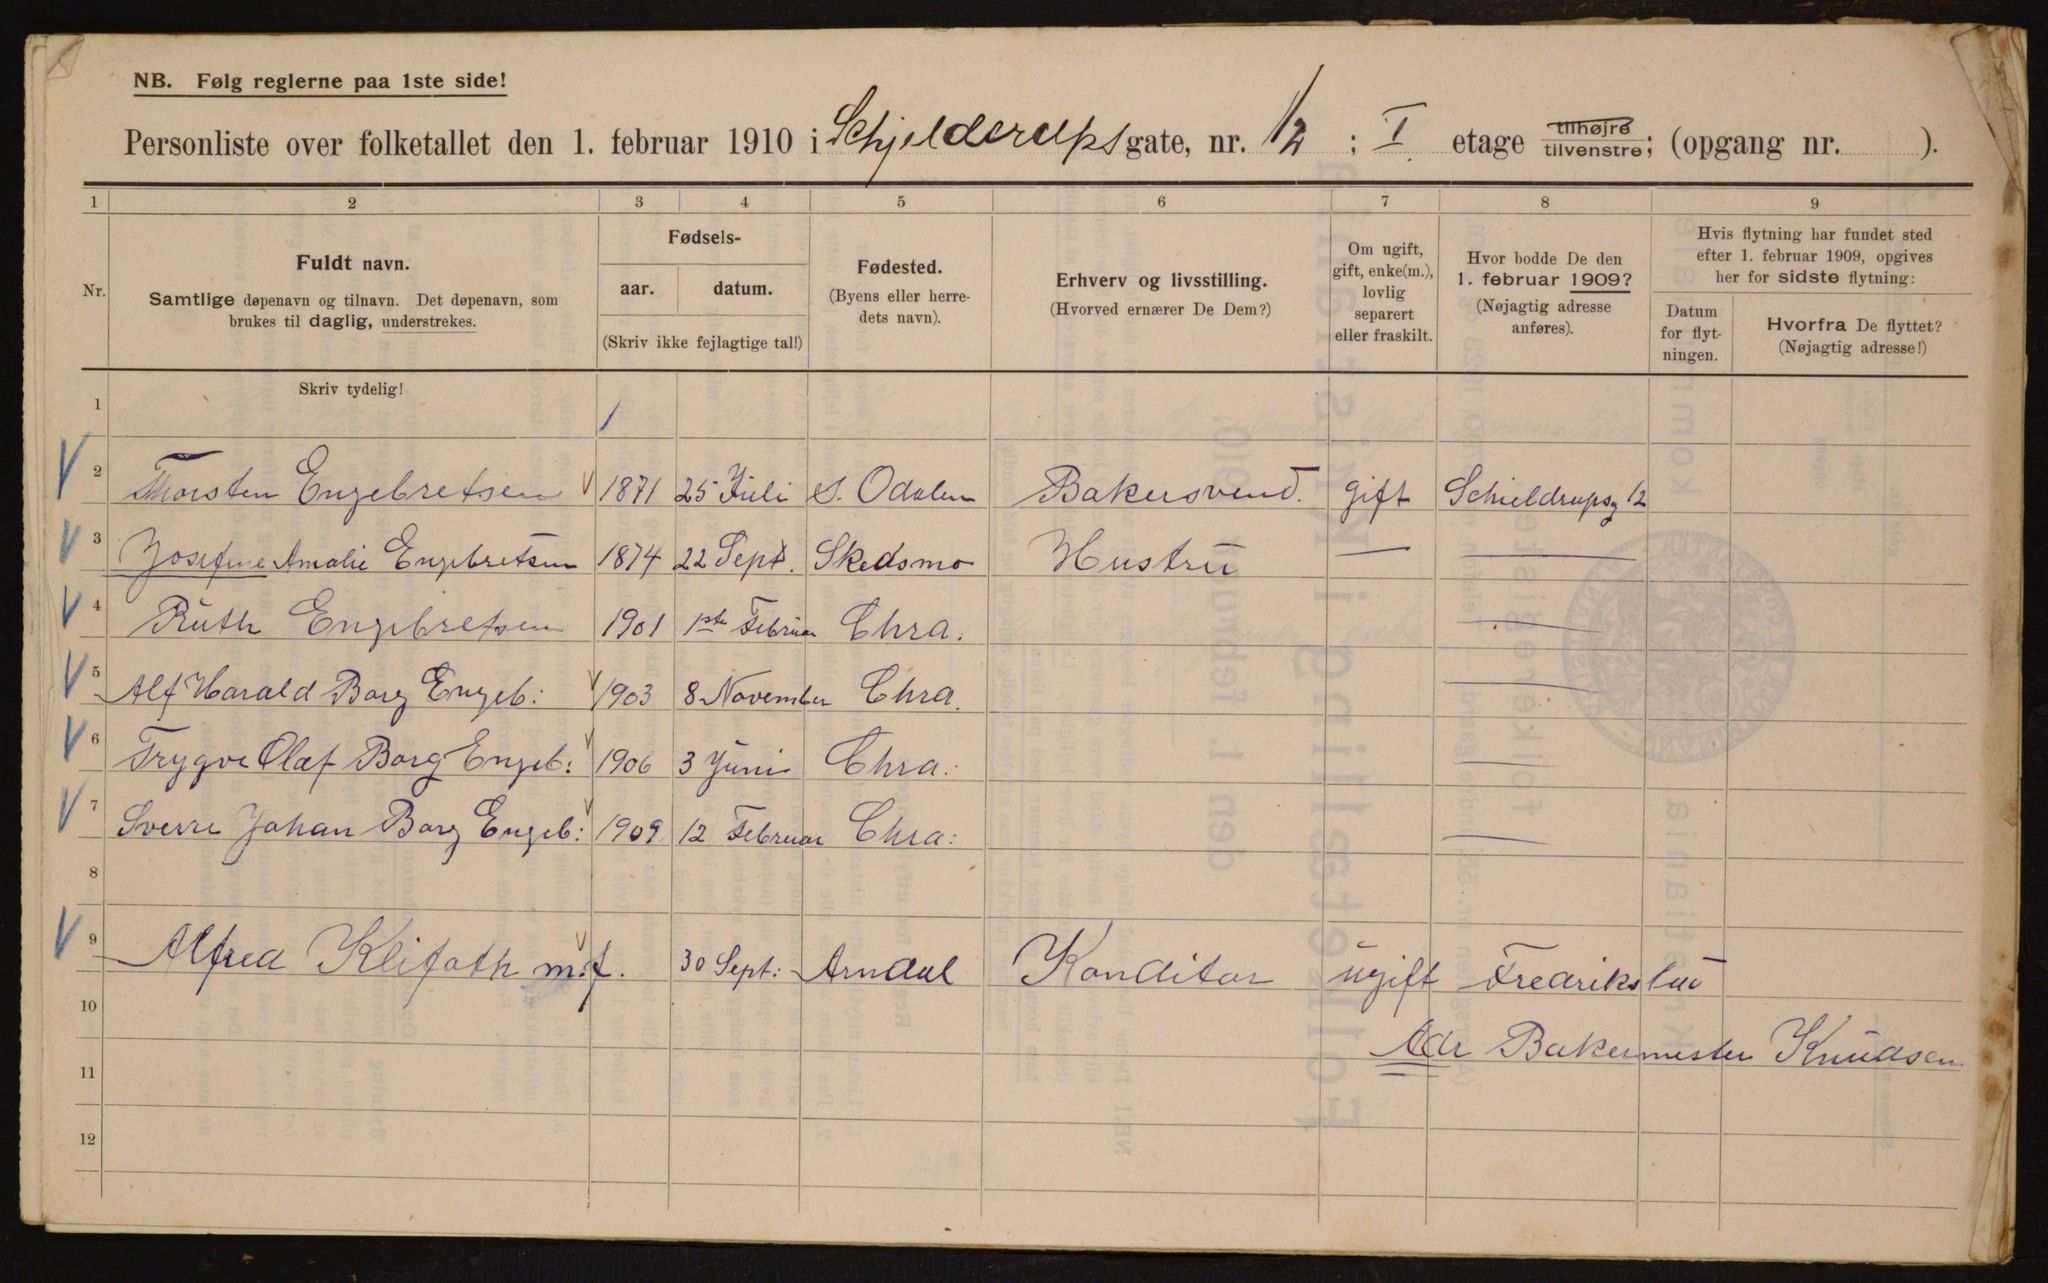 NB. Følg reglerne paa 1ste side!
Personliste over folketallet den 1. februar 1910 i Schjelderups gate, nr. 12 ; I etage tilhøjre tilvenstre; (opgang nr. ).
1 2 3 4 5 6 7 8 9
Nr.
Fuldt navn.
Samtlige døpenavn og tilnavn. Det døpenavn, som
brukes til daglig, understrekes.
Fødsels-
aar. datum.
(Skriv ikke fejlagtige tal!)
Fødested.
(Byens eller herre-
dets navn).
Erhverv og livsstilling.
(Hvorved ernærer De Dem?)
Om ugift,
gift, enke(m.),
lovlig
separert
eller fraskilt.
Hvor bodde De den
1. februar 1909?
(Nøjagtig adresse
anføres).
Hvis flytning har fundet sted
efter 1. februar 1909, opgives
her for sidste flytning:
Datum
for flyt-
ningen.
Hvorfra De flyttet?
(Nøjagtig adresse!)
Skriv tydelig!
1
2 Thorsten Engebretsen 1871 25 Juli S. Odalen Bakersvend. gift Schieldrupsg 12
3 Josefine Amalie Engebretsen 1874 22 Sept. Skedsmo Hustru — —
4 Ruth Engebretsen 1901 1ste Februar Chra. —
5 Alf Harald Borg Engeb: 1903 8 November Chra. —
6 Trygve Olaf Borg Engeb: 1906 3 Juni Chra: —
7 Sverre Johan Borg Engeb: 1909 12 Februar Chra: —
8
9 Alfred Klifoth m.f. 30 Sept: Arndal Konditor ugift Fredrikstad
10
Adr Bakermester Knudsen
11
12